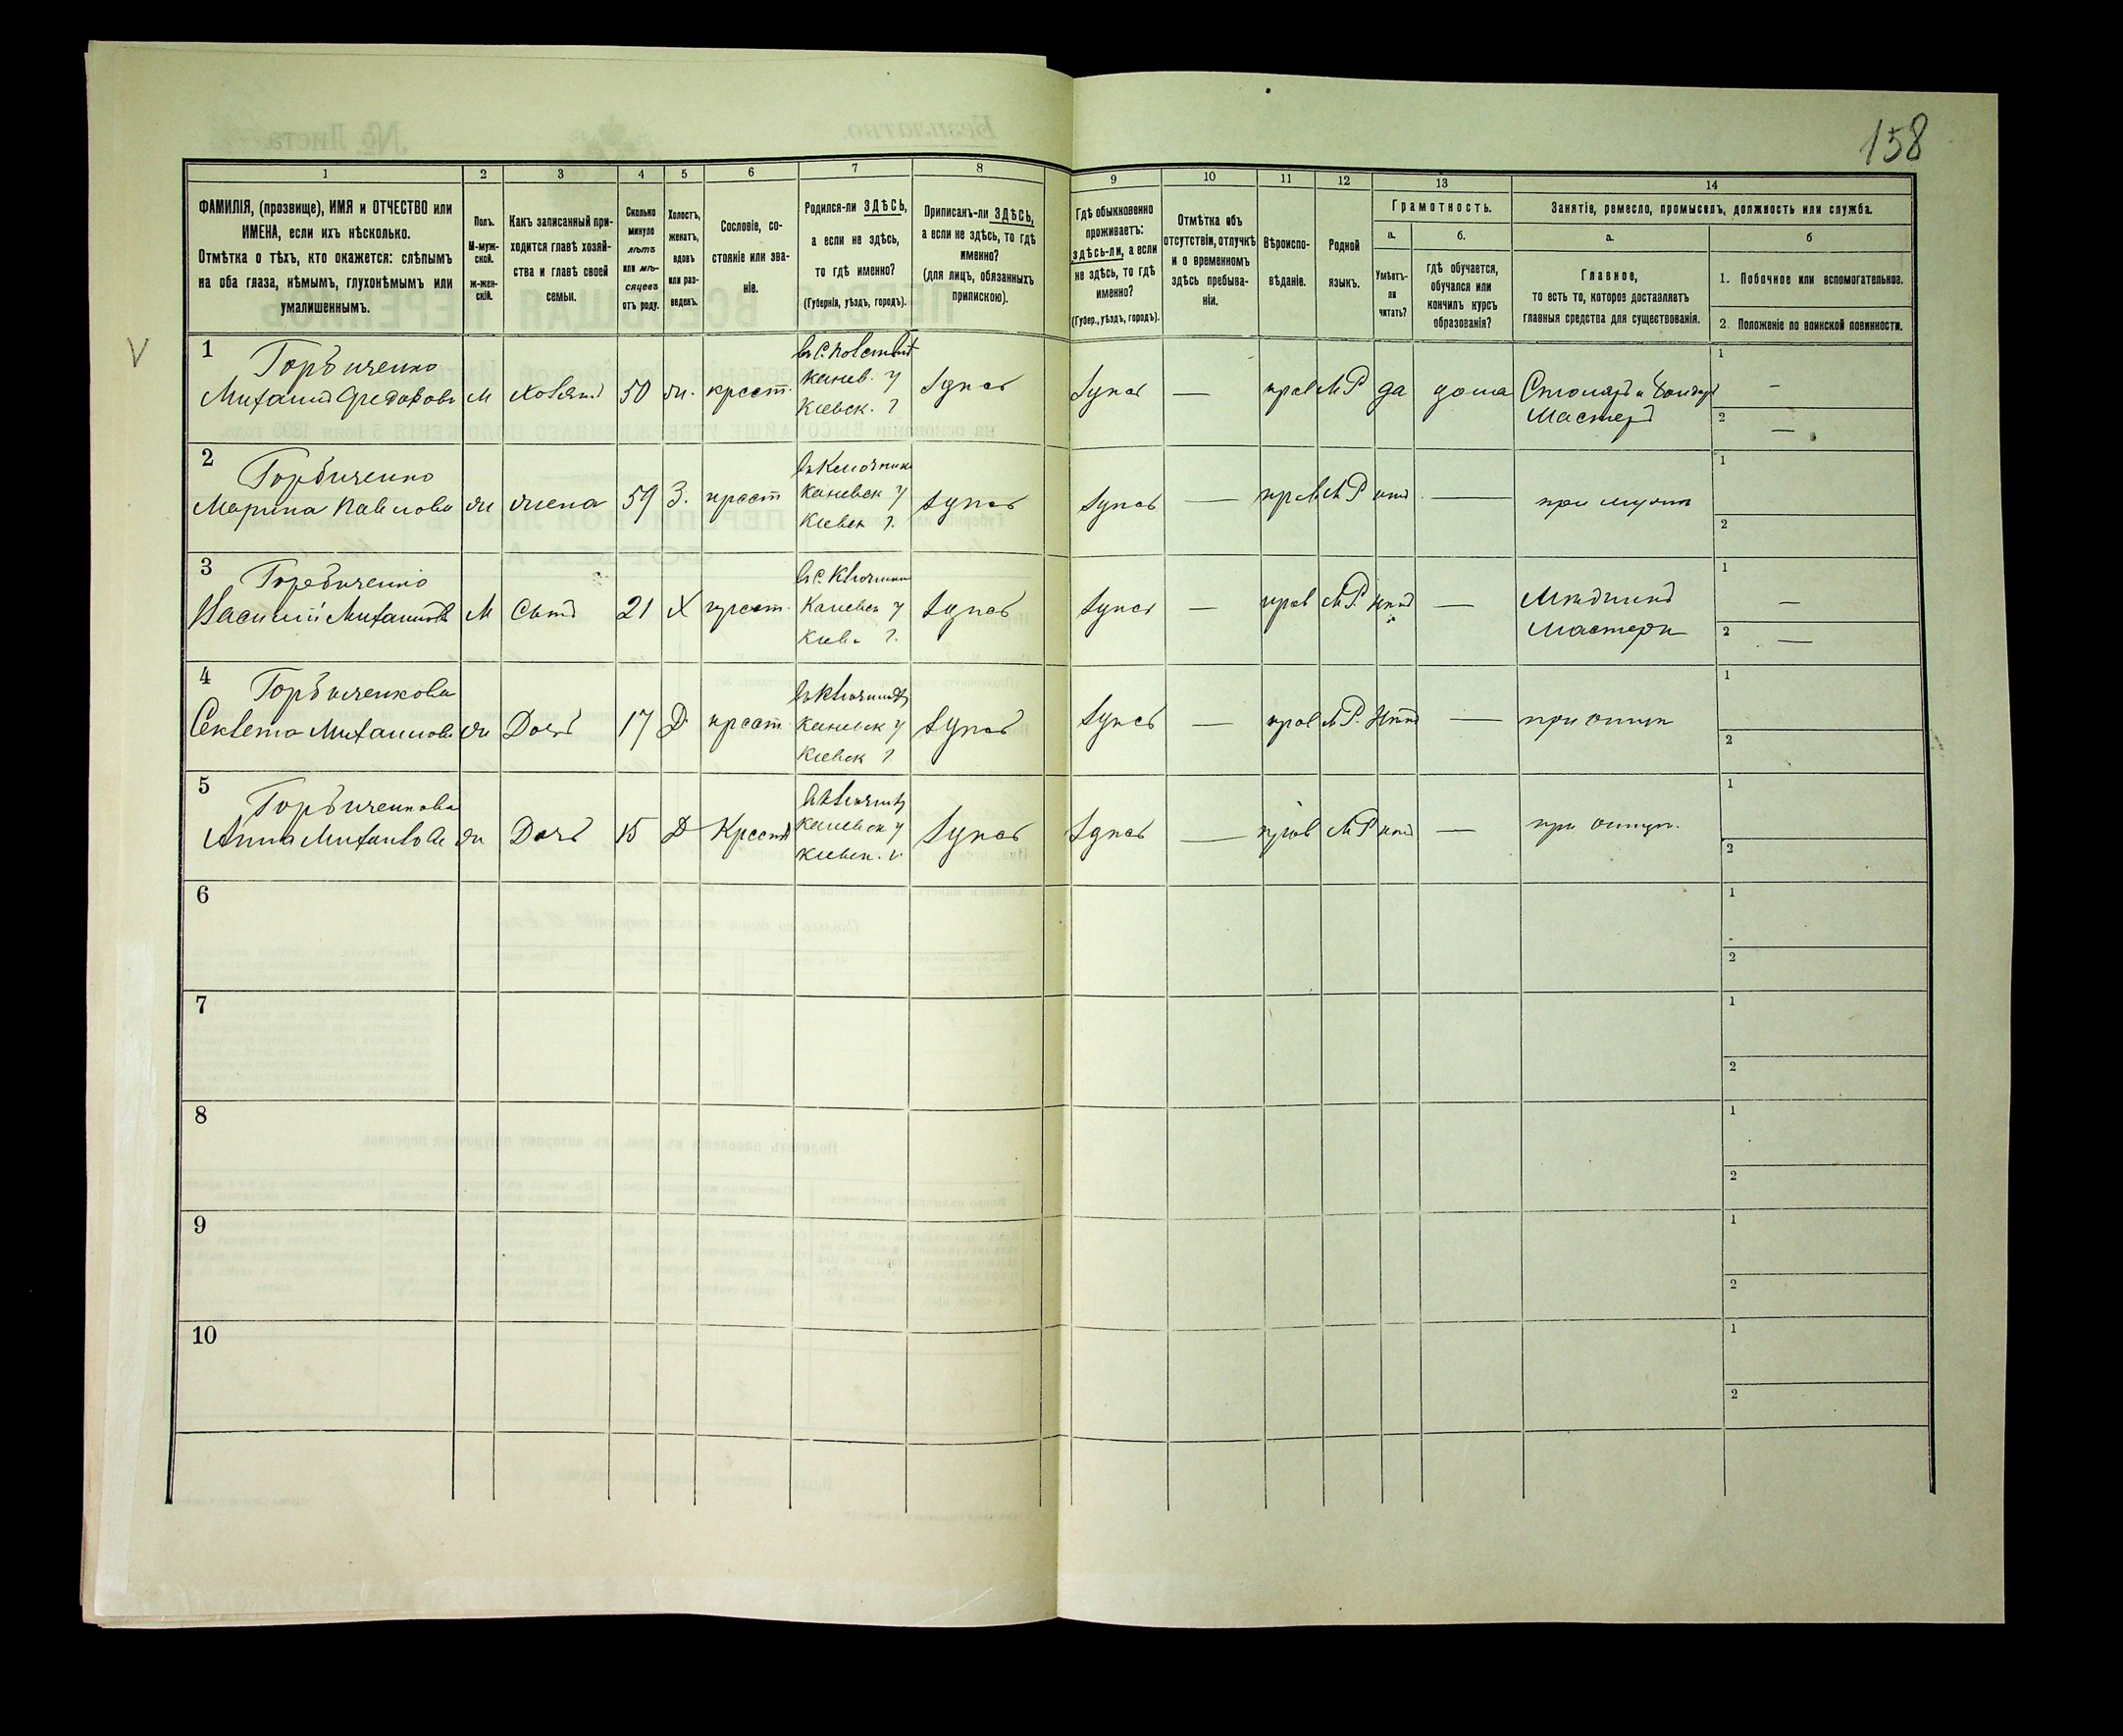 158
1
2
3
4
5
6
7
8
9
10
11
12
13
14
ФАМИЛІЯ, (прозвище), ИМЯ и ОТЧЕСТВО или
ИМЕНА, если ихъ нѣсколько.
Отмѣтка о тѣхъ, кто окажется: слѣпымъ
на оба глаза, нѣмымъ, глухонѣмымъ или
умалишеннымъ.
Полъ.
М-муж-
ской.
ж-жен-
скій.
Какъ записанный при-
ходится главѣ хозяй-
ства и главѣ своей
семьи.
Сколько
минуло
лѣтъ
или мѣ-
сяцевъ
отъ роду.
Холостъ,
женатъ,
вдовъ
или раз-
веденъ.
Сословіе, со-
стояніе или зва-
ніе.
Родился-ли ЗДѢСЬ,
а если не здѣсь,
то гдѣ именно?
(Губернія, уѣздъ, городъ).
Приписанъ-ли ЗДѢСЬ,
а если не здѣсь, то гдѣ
именно?
(для лицъ, обязанныхъ
припискою).
Гдѣ обыкновенно
проживаетъ:
здѣсь-ли, а если
не здѣсь, то гдѣ
именно?
(Губер., уѣздъ, городъ).
Отмѣтка объ
отсутствіи, отлучкѣ
и о временномъ
здѣсь пребыва-
ніи.
Вѣроиспо-
вѣданіе.
Родной
языкъ.
Грамотность.
а.
б.
Умѣетъ-
ли
читать?
гдѣ обучается,
обучался или
кончилъ курсъ
образованія?
Занятіе, ремесло, промыселъ, должность или служба.
а.
б
Главное,
то есть то, которое доставляетъ
главныя средства для существованія.
1. Побочное или вспомогательное.
2. Положеніе по воинской повинности.
V
1
Горбиченко
Михаилъ Федоровъ
М
Хозяинъ
50
ж.
крест.
Канев. у
Киевск. г
здѣсь
здѣсь
—
прав
МР
да
дома
Столяръ и
Мастеръ
1
—
2
—
2
Горбиченко
Марина Павлова
ж
жена
59
З.
крест
Каневск у
Киевск г.
здѣсь
здѣсь
—
прав
МР
нѣтъ
—
при мужѣ
1
2
3
Горбиченко
Василій Михайловъ
М
Сынъ
21
Х
крест.
Каневск у
Киев. г.
здѣсь
здѣсь
—
прав
МР.
нѣтъ
—
1
—
2
—
4
Горбиченкова
Михайлова
ж
Дочь
17
Д
крест
Каневск у
Киевск г
здѣсь
здѣсь
—
прав
МР.
Нѣтъ
—
при отцѣ
1
2
5
Горбиченкова
Анна Михайлова
ж
Дочь
15
Д
Крест
Каневск у
Киевск. г.
здѣсь
здѣсь
—
прав
МР
нѣтъ
—
при отцѣ.
1
2
6
1
2
7
1
2
8
1
2
9
1
2
10
1
2